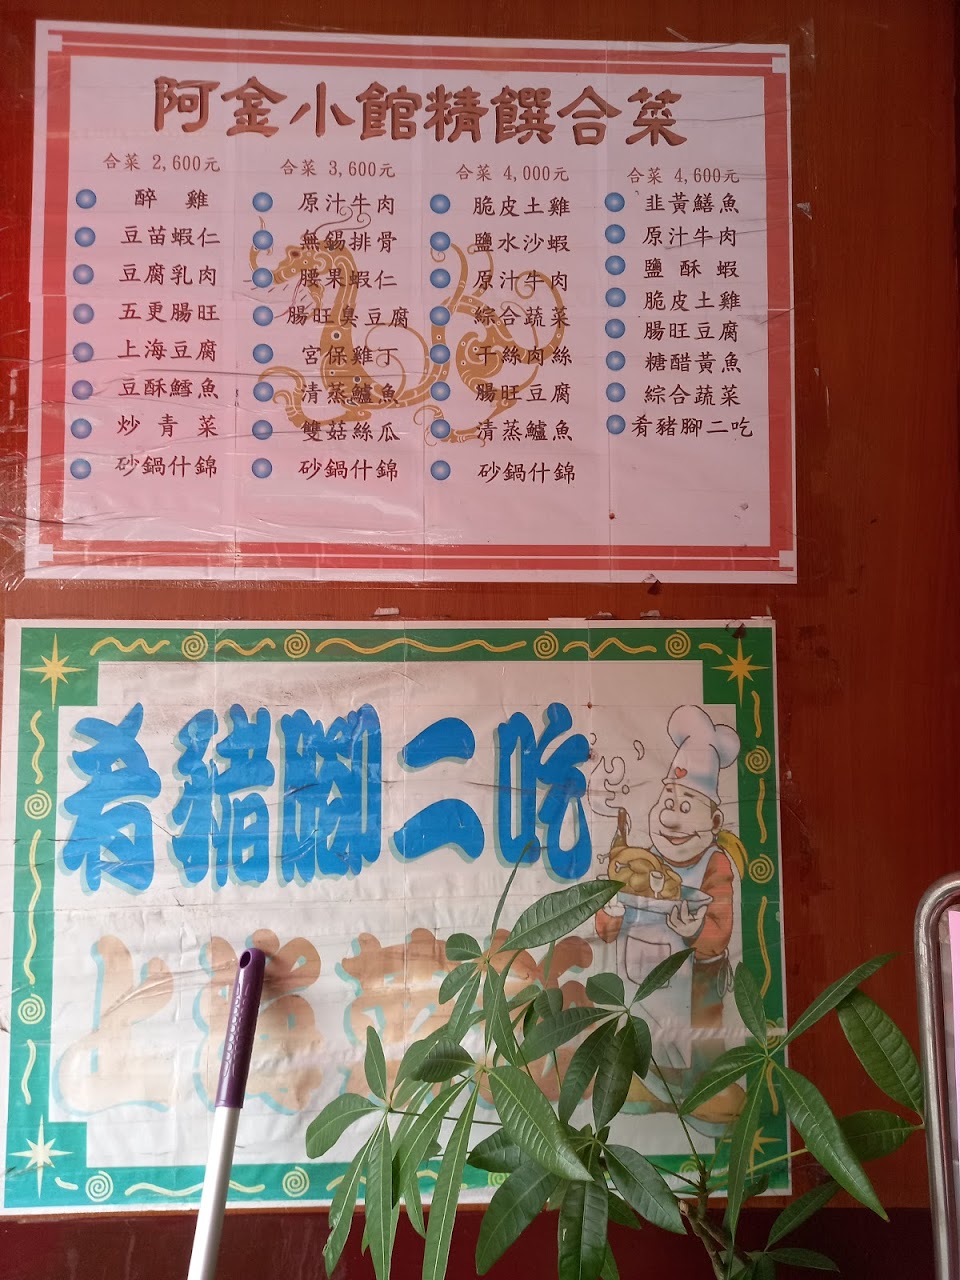 阿金小館精饌合菜
合菜 2,600元
醉雞
豆苗蝦仁
豆腐乳肉
五更腸旺
上海豆腐
豆酥鱈魚
炒青菜
砂鍋什錦
合菜 3,600元
原汁牛肉
無錫排骨
腰果蝦仁
腸旺臭豆腐
宮保雞丁
清蒸鱸魚
雙菇絲瓜
砂鍋什錦
合菜 4,000元
脆皮土雞
鹽水沙蝦
原汁牛肉
綜合蔬菜
干絲肉絲
腸旺豆腐
清蒸鱸魚
砂鍋什錦
合菜 4,600元
韭黃鱔魚
原汁牛肉
鹽酥蝦
脆皮土雞
腸旺豆腐
糖醋黃魚
綜合蔬菜
肴豬腳二吃
肴豬腳二吃
上海菜